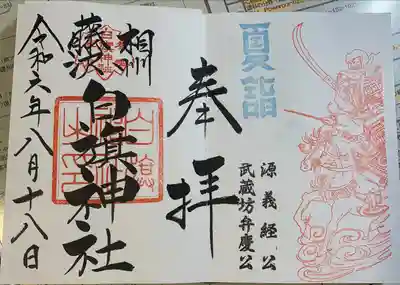 夏詣
源義経公
武蔵坊弁慶公
奉拝
相州
藤沢
白旗神社
令和六年八月十八日